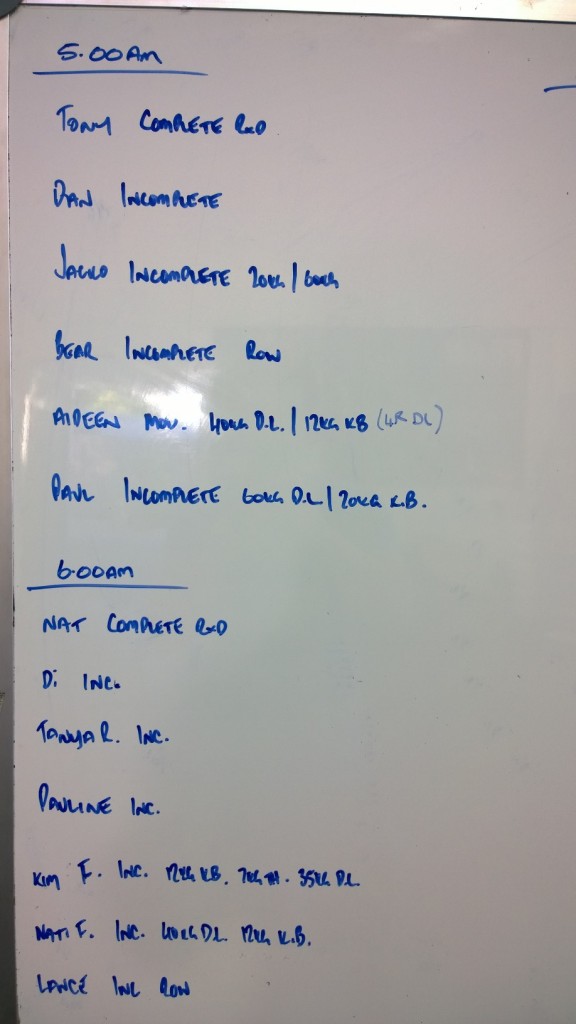 5.00AM
TONY COMPLETE RxD
DAN INCOMPLETE
JACKO INCOMPLETE 20KG / 60KG
BEAR INCOMPLETE ROW
AIDEEN MOD. 40KG D.L. / 12KG KB (4R DL)
PAUL INCOMPLETE 60KG D.L / 20KG K.B.
6.00AM
NAT COMPLETE RxD
Di INC.
TANYA R. INC.
PAULINE INC.
KIM F. INC. 12KG KB. 7KG TH. 35KG D.L.
NATI F. INC. 40KG D.L. 12KG K.B.
LANCE INC ROW